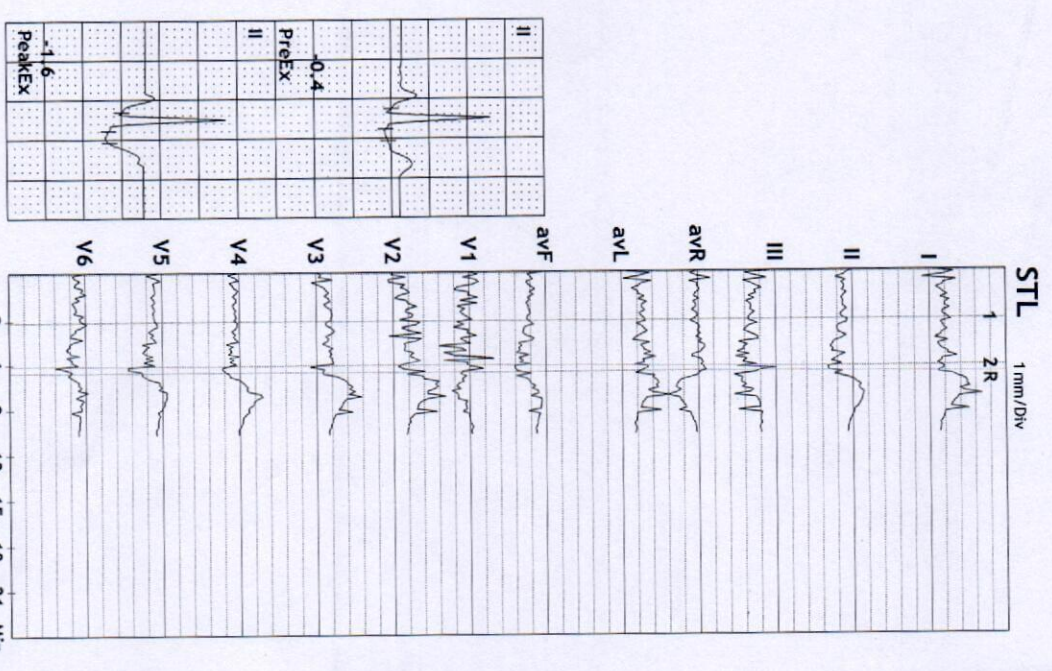 STL 1mm/Div
1 2 R
I
II
III
avR
avL
avF
V1
V2
V3
V4
V5
V6
II
-0.4
PreEx
II
-1.6
PeakEx